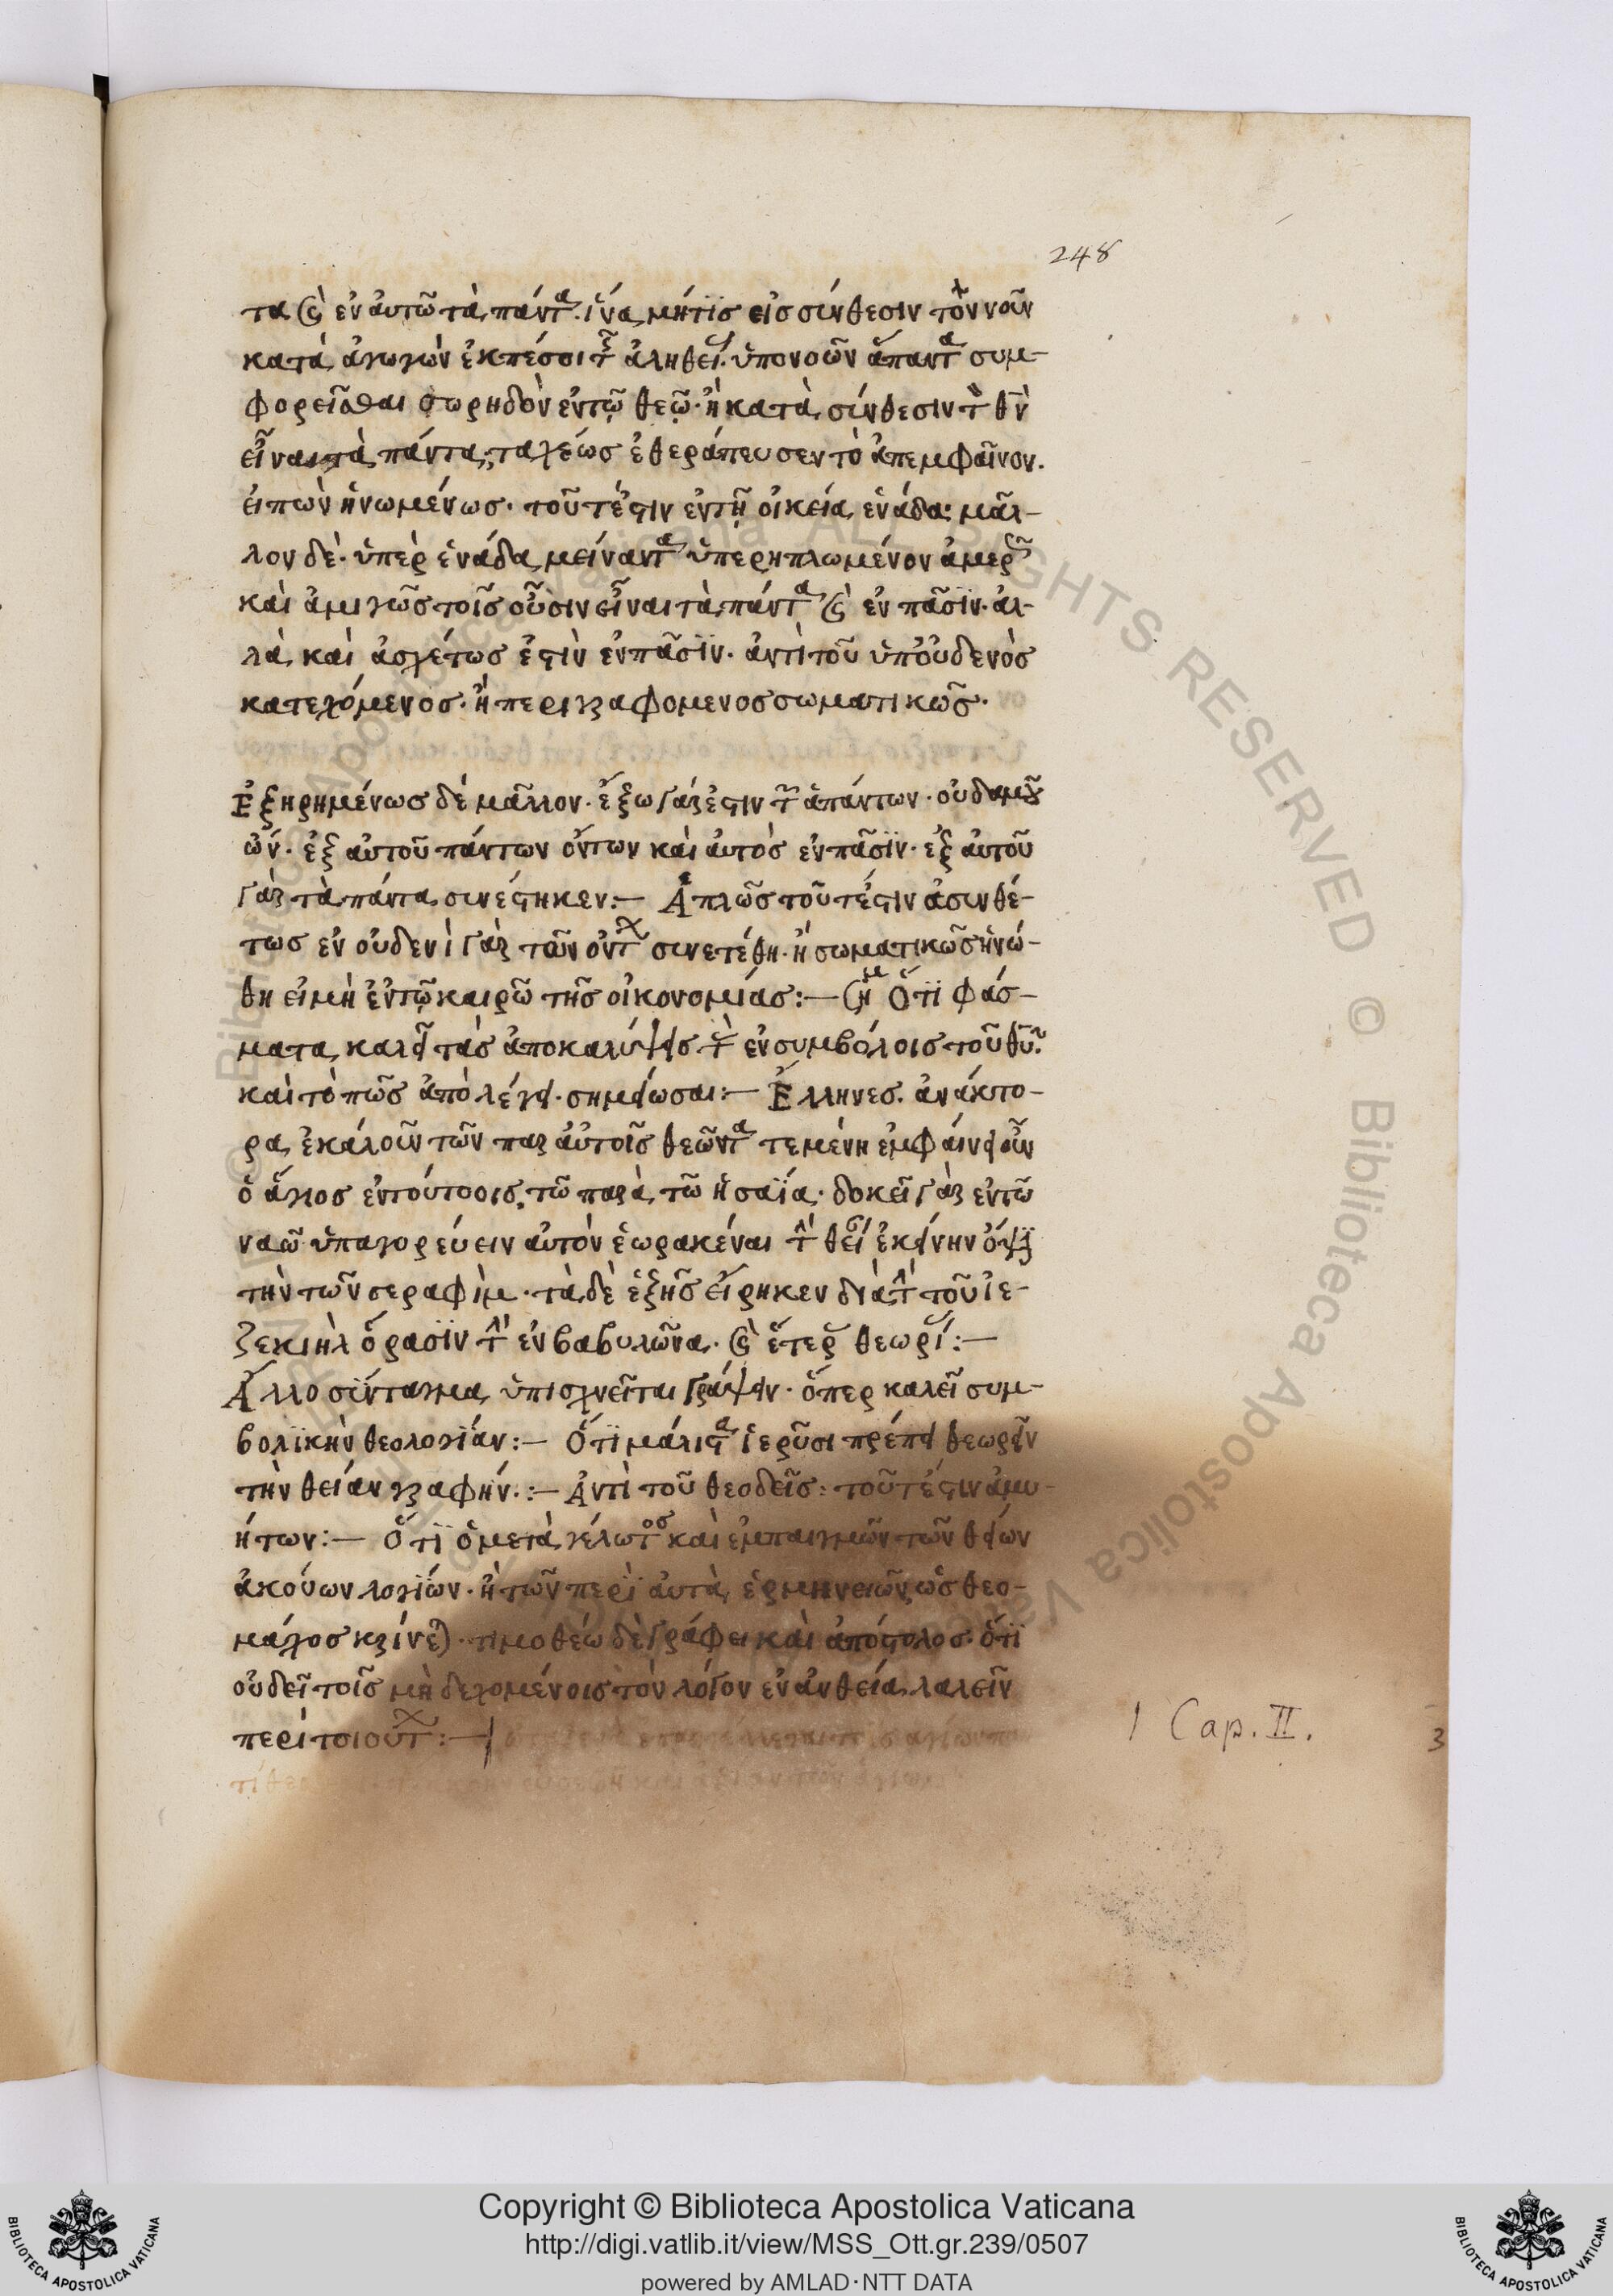 248
τα (καὶ) ἐν αὐτῶ τὰ πάντα. ἵνα μήτϊς εἰς σύνθεσιν τὸν νοῦν
κατὰ ἀγωγὴν ἐκπέσοι τῆς ἀληθεί. ὑπονοῶν ἅπαντα συμ-
φορεῖσθαι σωρηδὸν ἐν τῶ θεῶ. ἢ κατὰ σύνθεσιν τὸν θν
εἶναι τὰ πάντα, ταχέως ἐθεράπευσεν τὸ ἀπεμφαῖνον.
εἰπὼν ἡνωμένως. τοῦτέστιν ἐν τῆ οἰκεία ἑνάδα. μᾶλ-
λον δὲ. ὑπὲρ ἑνάδα μείναντα ὑπερηπλωμένον ἀμερῶς
καὶ ἀμιγῶς τοῖς οὖσιν εἶναι τὰ πάντα καὶ ἐν πᾶσϊν. ἀλ-
λὰ καὶ ἀσχέτως ἐστὶν ἐν πᾶσϊν. ἀντὶ τοῦ ὑπ' οὐδενὸς
κατεχόμενος. ἢ περιγραφομενος σωματικῶς.
Ἐξηρημένως δὲ μᾶλλον. ἔξω γάρ ἐστιν τῶν ἁπάντων. οὐδαμοῦ
ὤν. ἐξ αὐτοῦ πάντων ὄντων καὶ αὐτὸς ἐν πᾶσϊν. ἐξ αὐτοῦ
γὰρ τὰ πάντα συνέστηκεν:— Ἁπλῶς τοῦτέστιν ἀσυνθέ-
τως ἐν οὐδενὶ γὰρ τῶν ὄντων συνετέθη. ἢ σωματικῶς ἡνώ-
θη εἰ μὴ ἐν τῶ καιρῶ τῆς οἰκονομίας:— Ση Ὅτϊ φάσ-
ματα καλεῖ τὰς ἀποκαλύψεις τὰς ἐν συμβόλοις τοῦ θυ.
καὶ τὸ πῶς ἀπὸ λέγει. σημείωσαι:— Ἕλληνες. ἀνάκτο-
ρα ἐκάλουν τῶν παρ αὐτοῖς θεῶν τὰ τεμένη ἐμφαίνει οὖν
ὁ ἅγιος ἐν τούτοις, τῶ παρὰ τῶ ἡσαΐα. δοκεῖ γὰρ ἐν τῶ
ναῶ ὑπαγορεύειν αὐτὸν ἑωρακέναι τὴν θεί ἐκείνην ὄψϊν
τὴν τῶν σεραφὶμ. τὰ δὲ ἑξῆς εἴρηκεν διὰ τὴν τοῦ ἰε-
ζεκιὴλ ὅρασϊν τὴν ἐν βαβυλῶνα. καὶ ἕτερ θεωρί:—
Ἄλλο σύνταγμα ὑπισχνεῖται γράψειν. ὅπερ καλεῖ συμ-
βολϊκὴν θεολογϊάν:— Ὅτϊ μάλιστα ἱεροῦσι πρέπει θεωρεῖν
τὴν θείαν γραφήν.:— Ἀντὶ τοῦ θεοδεῖς: τοῦτέστιν ἀμυ-
ήτων:— Ὅτϊ ὁ μετὰ γέλωτος καὶ ἐμπαιγμῶν τῶν θείων
ἀκούων λογϊών. ἢ τῶν περὶ αὐτὰ ἑρμηνειῶν, ὡς θεο-
μάχος κρίνεται. τιμοθέω δὲ γράφει καὶ ἀπόστολος. ὅτϊ
οὐ δεῖ τοῖς μὴ δεχομένοις τὸν λόγον ἐν ἀνθεία λαλεῖν
περὶ τοιούτων:—|
| Cap. II.
3
Copyright © Biblioteca Apostolica Vaticana
http://digi.vatlib.it/view/MSS_Ott.gr.239/0507
powered by AMLAD·NTT DATA
BIBLIOTECA APOSTOLICA VATICANA
BIBLIOTECA APOSTOLICA VATICANA